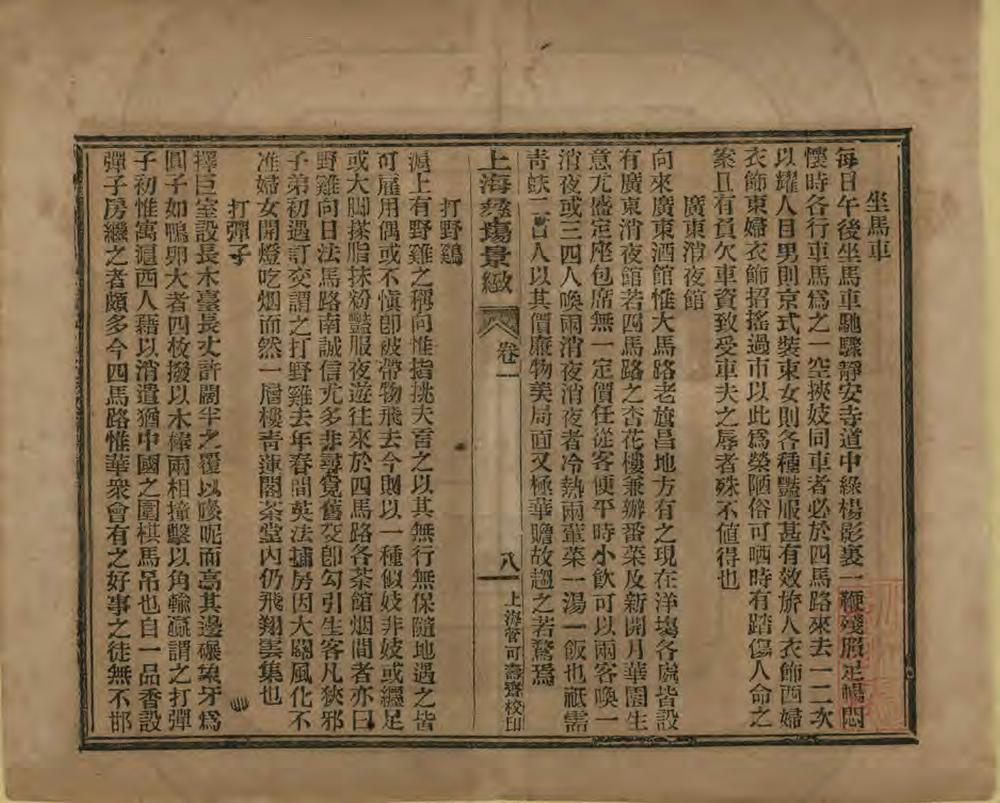 坐馬車
每日午後坐馬車馳驟靜安寺道中綠楊影裏一鞭殘照足暢悶
懷時各行車馬爲之一空挾妓同車者必於四馬路來去一二次
以耀人目男則京式裝束女則各種豔服甚有效旂人衣飾西婦
衣飾東婦衣飾招搖過市以此爲榮陋俗可哂時有踏傷人命之
案且有負欠車資致受車夫之辱者殊不值得也
廣東消夜館
向來廣東酒館惟大馬路老旗昌地方有之現在洋塲各處皆設
有廣東消夜館若四馬路之杏花樓兼辦番菜及新開月華園生
意尤盛定座包席無一定價任從客便平時小飲可以兩客喚一
消夜或三四人喚兩消夜消夜者冷熱兩葷菜一湯一飯也祇需
靑蚨二百人以其價廉物美局面又極華贍故趨之若鶩焉
上海彝塲景緻
卷一
八
上海管可壽齋校印
打野雞
滬上有野雞之稱向惟指挑夫言之以其無行無保隨地遇之皆
可雇用偶或不愼卽被帶物飛去今則以一種似妓非妓或纏足
或大脚搽脂抹粉豔服夜遊往來於四馬路各茶館烟間者亦曰
野雞向日法馬路南誠信尤多非尋覓舊交卽勾引生客凡狹邪
子弟初遇訂交謂之打野雞去年春間英法捕房因大關風化不
准婦女開燈吃烟而然一層樓靑蓮閣茶堂内仍飛翔雲集也
打彈子
擇巨室設長木臺長丈許闊半之覆以 呢而高其邊碾象牙爲
圓子如鴨卵大者四枚撥以木棒兩相撞擊以角輸贏謂之打彈
子初惟寓滬西人藉以消遣猶中國之圍棋馬吊也自一品香設
彈子房繼之者頗多今四馬路惟華衆會有之好事之徒無不邯